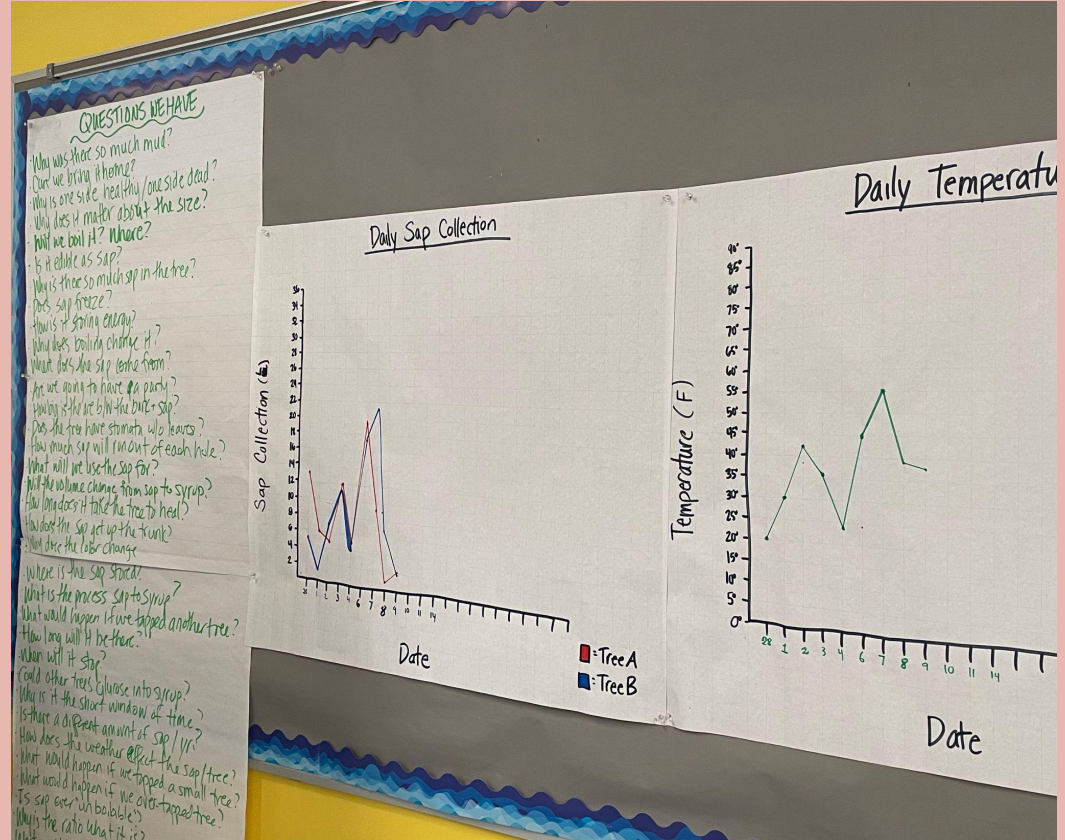 QUESTIONS WE HAVE
· Why was there so much mud?
· Can we bring it home?
· Why is one side healthy/one side dead?
· Why does it matter about the size?
· Will we boil it? Where?
· Is it edible as sap?
· Why is there so much sap in the tree?
· Does sap freeze?
· How is it storing energy?
· Why does boiling change it?
· What does the sap come from?
· Are we going to have a party?
· How big is the are b/w the bark + sap?
· Does the tree have stomata w/o leaves?
· How much sap will run out of each hole?
· What will we use the sap for?
· Will the volume change from sap to syrup?
· How long does it take the tree to heal?
· How does the sap get up the trunk?
· Why does the color change
· Where is the sap stored?
· What is the process sap to syrup?
· What would happen if we tapped another tree?
· How long will it be there?
· When will it stop?
· Could other trees glucose into syrup?
· Why is it the short window of time?
· Is there a different amount of sap / yr?
· How does the weather effect the sap/tree?
· What would happen if we tapped a small tree?
· What would happen if we over-tapped tree?
· Is sap ever "unboilable"?
· Why is the ratio what it is?
Daily Sap Collection
36
34
32
30
28
26
24
22
20
18
16
14
12
10
8
6
4
2
Sap Collection
28 1 2 3 4 6 7 8 9 10 11 14
Date
= Tree A
= Tree B
Daily Temperatu
90°
85°
80°
75°
70°
65°
60°
55°
50°
45°
40°
35°
30°
25°
20°
15°
10°
5°
0°
Temperature (F)
28 1 2 3 4 6 7 8 9 10 11 14
Date